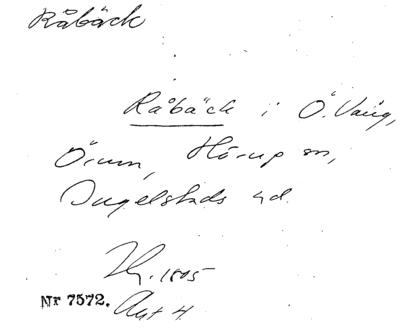 Råbäck
Råbäck i Ö. Vång,
Örum, Hörup sn,
Ingelstads hd.
1805
Nr 7572. Akt 4